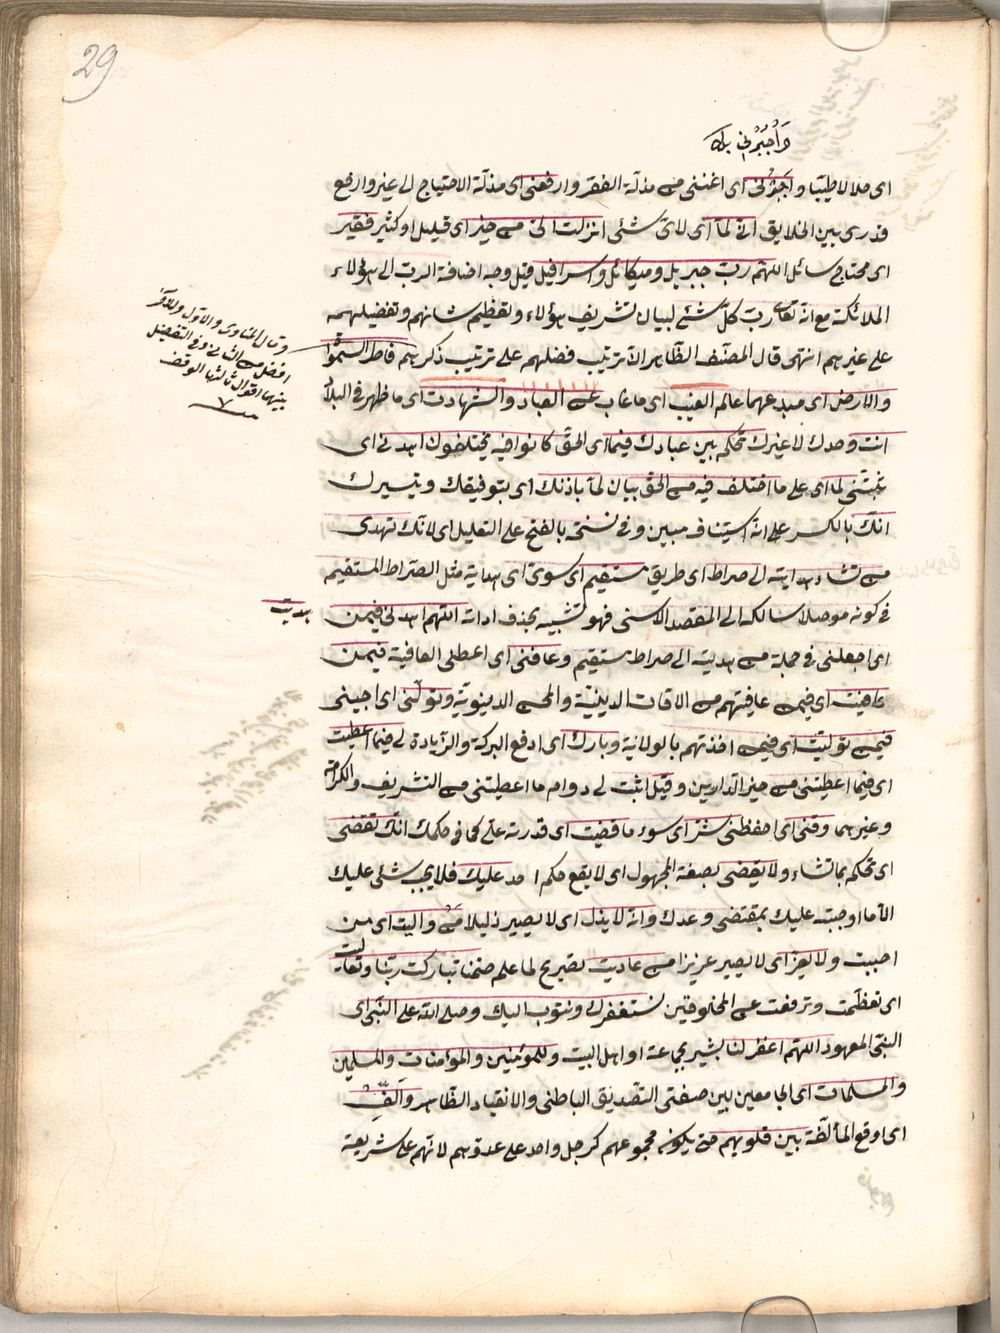 29
واجبرني بدله
اى حلالا طيبا واجبرنى اى اغننى من مذلة الفقر وارفعنى اى مذلة الاحتياج لى غير وارفع
قدرى بين الخلايق انى لما اى لاى شئى انزلت الى من خير اى قليل او كثير فقير
اى محتاج سائل اللهم رب جبريل وميكائل واسرافيل قيل وجه اضافة الرب الى هؤلاء
الملائكة مع انه تعا رب كل شئ لبيان تشريف هؤلاء وتعظيم شانهم وتفضيلهم
على غيرهم انتهى قال المصنف الظاهر ان ترتيب فضلهم على ترتيب ذكرهم فاطر السموا
والارض اى مبدعهما عالم الغيب اى ما غاب عن العباد والشهادت اى ما ظهر فى البلا
وقال المناوى والاول والآخر
افضل من الثانى وفى التفضيل
بينها اقوال ثالثها الوقف
انت وحدك لا غيرك تحكم بين عبادك فيما اى الحق كانوا فيه يختلفون اهدنى اى
ثبتنى لما اى على ما اختلف فيه من الحق بيان لما باذنك اى بتوفيقك وتيسيرك
انك بالكسر على انه استيناف مبين وفى نسخة بالفتح على التعليل اى لانك تهدى
من تشاء هدايته الى صراط اى طريق مستقيم اى سوى اى هداية مثل الصراط المستقيم
فى كونه موصلا سالكه الى المقصد الاسنى فهو تشبيه بحذف اداته اللهم اهدنى فيمن
هديت
اى اجعلنى فى جملة من هديته الى صراط مستقيم وعافنى اى اعطنى العافية فيمن
عافيت اى فيمن عافيتهم من الافات الدينية والمحن الدينوية وتولنى اى اجبنى
فيمن توليت اى فيمن اخذتهم بالولاية وبارك اى ادفع البركة والزيادة لى فيما اعطيت
اى فيما اعطيتنى من خير الدارين وقيل اثبت لى دوام ما اعطيتنى من التشريف والكرامة
وغيرهما وقنى اى احفظنى شر اى سوء ما قضيت اى قدرته على كما فى حكمك انك تقضى
اى تحكم بما تشاء ولا يقضى بصيغة المجهول اى لا يقع حكم احد عليك فلا يجب شئى عليك
الا ما اوجبته عليك بمقتضى وعدك وانه لا يذل اى لا يصير ذليلا من واليت اى من
احببت ولا يعز اى لا يصير عزيزا من عاديت تصريح لما علم ضمنا تباركت ربنا وتعاليت
اى تعظمت وترفعت عن المخلوقين نستغفرك ونتوب اليك وصلى الله على النبى اى
النبى المعهود اللهم اغفر لنا بشير بجماعة او اهل البيت وللمؤمنين والمؤمنات والمسلمين
والمسلمات اى الجامعين بين صفتى التصديق الباطنى والانقياد الظاهر والف
اى اوقع المألفة بين قلوبهم حتى يكون مجموعهم كرجل واحد على عدوهم لانهم على شريعة